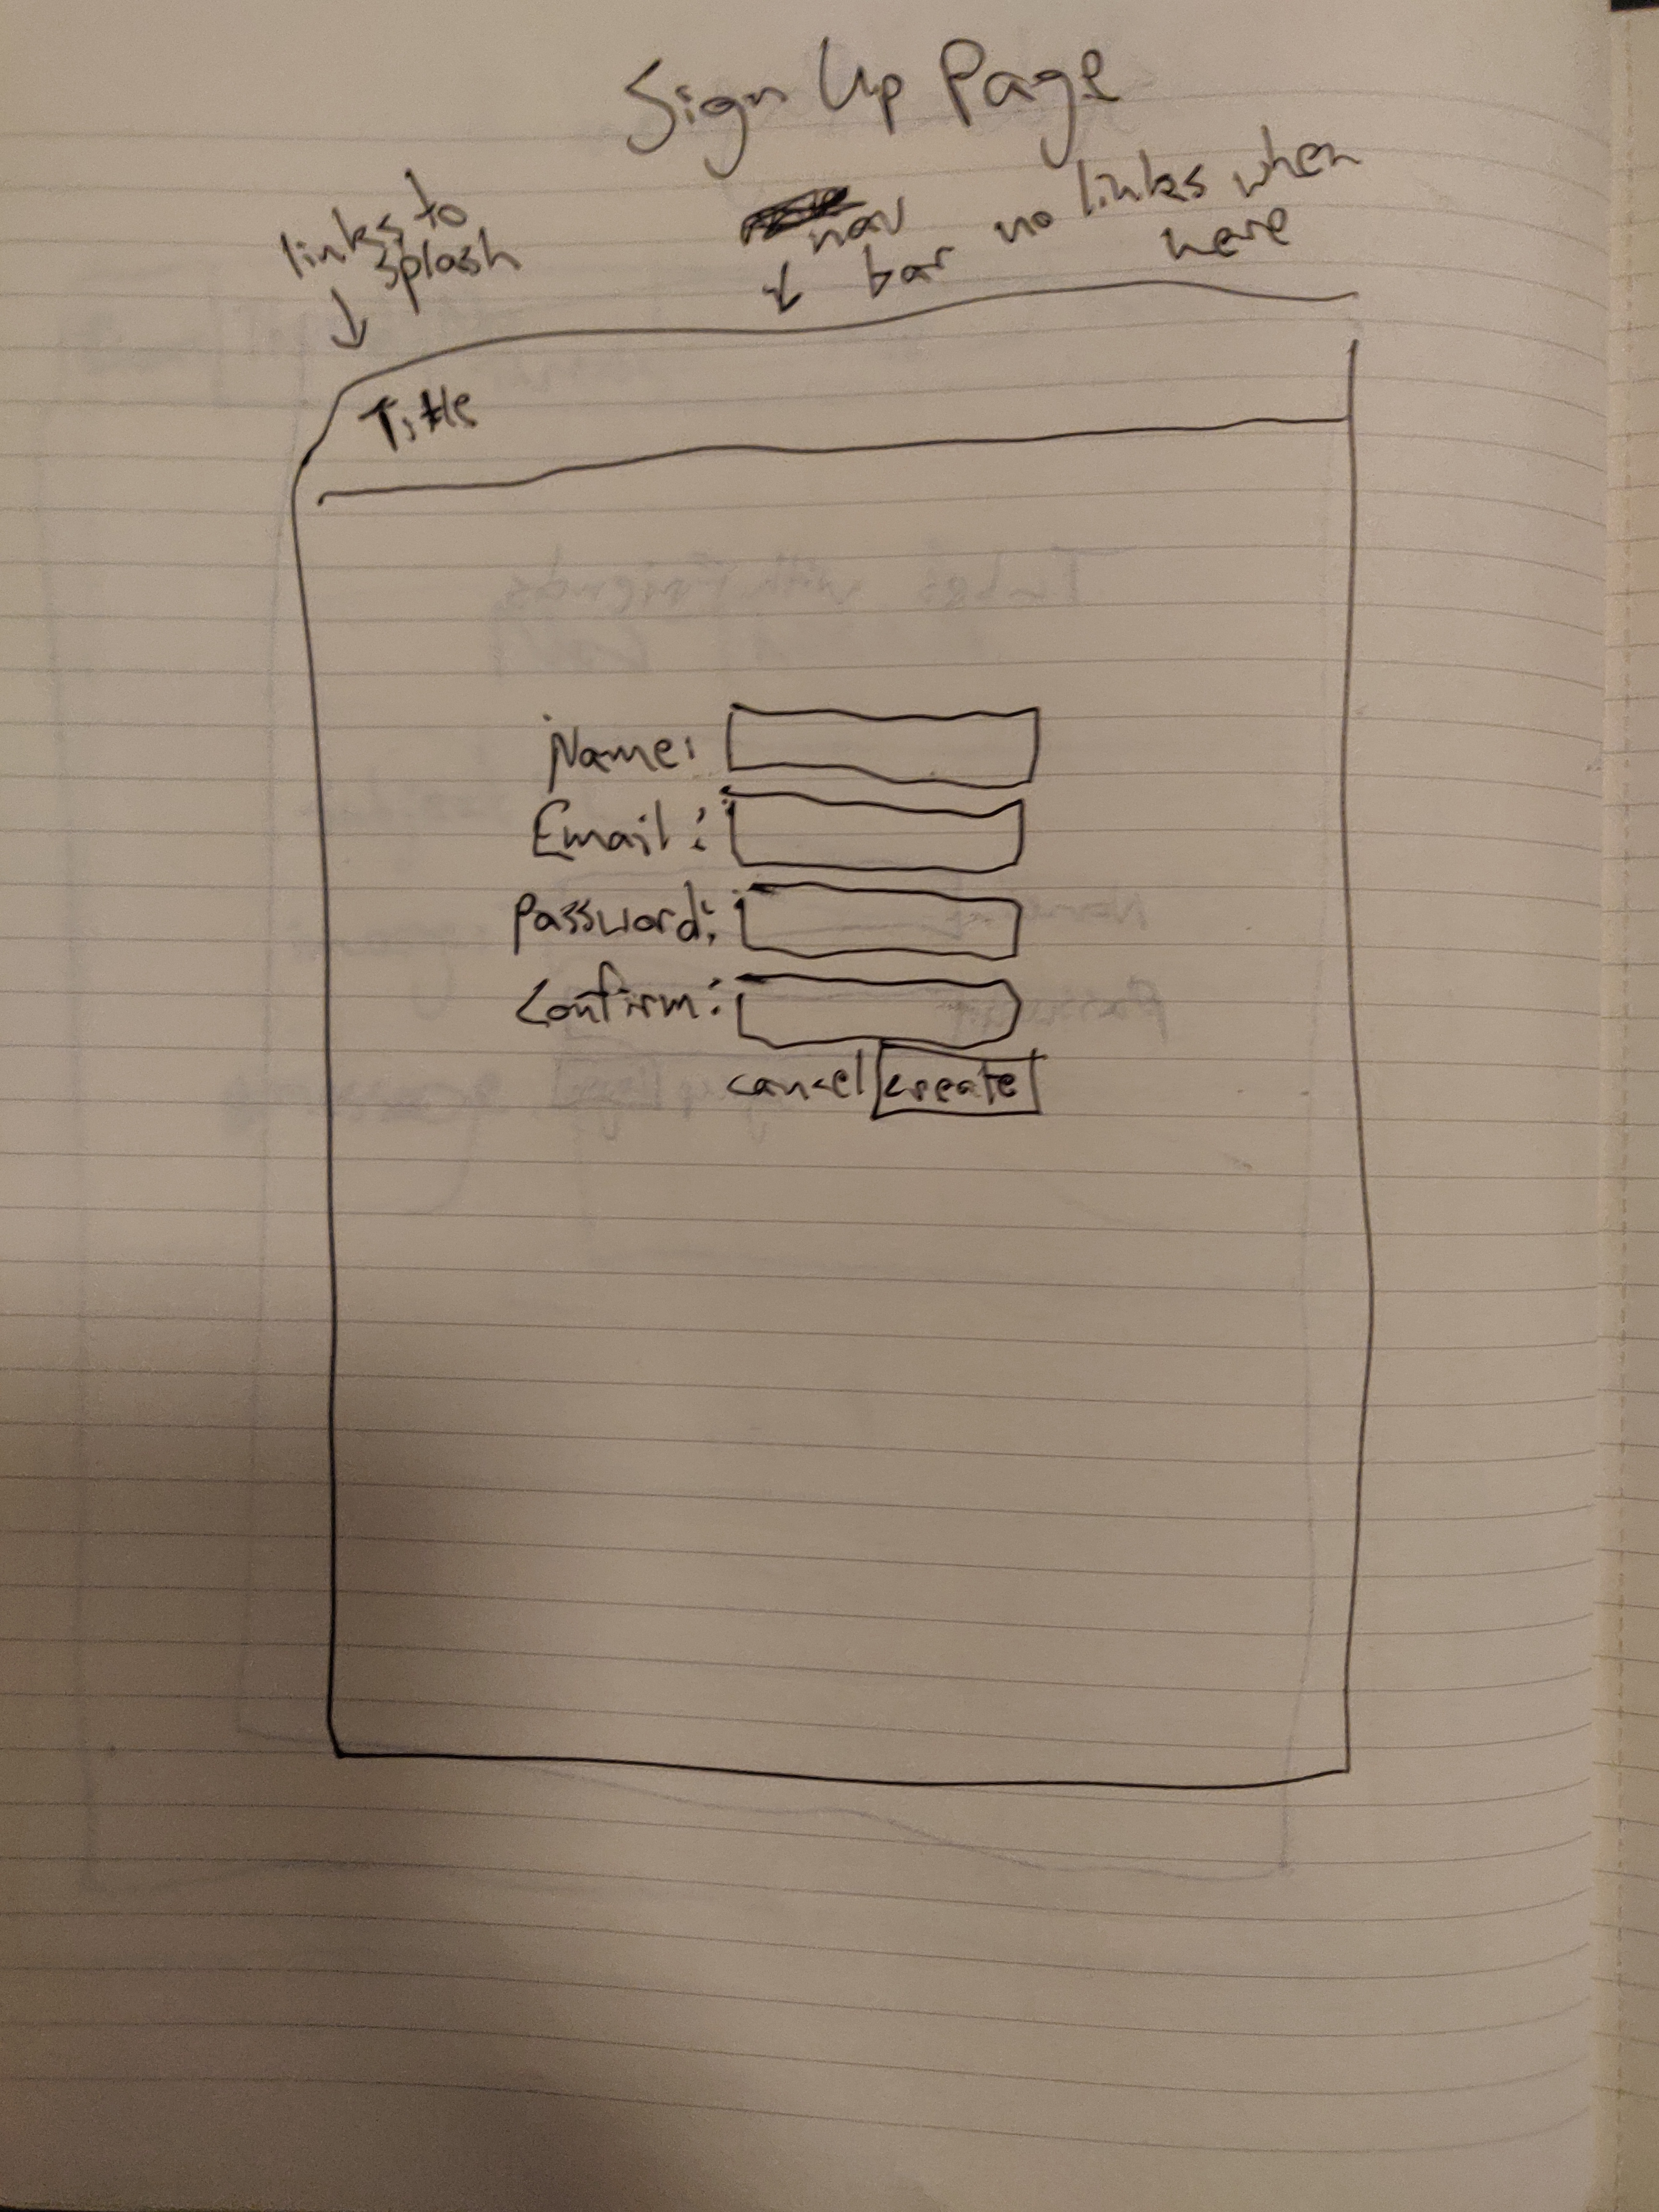 Sign Up Page
links to
splash
nav
bar no links when
here
Title
Name:
Email:
Password:
Confirm:
cancel create